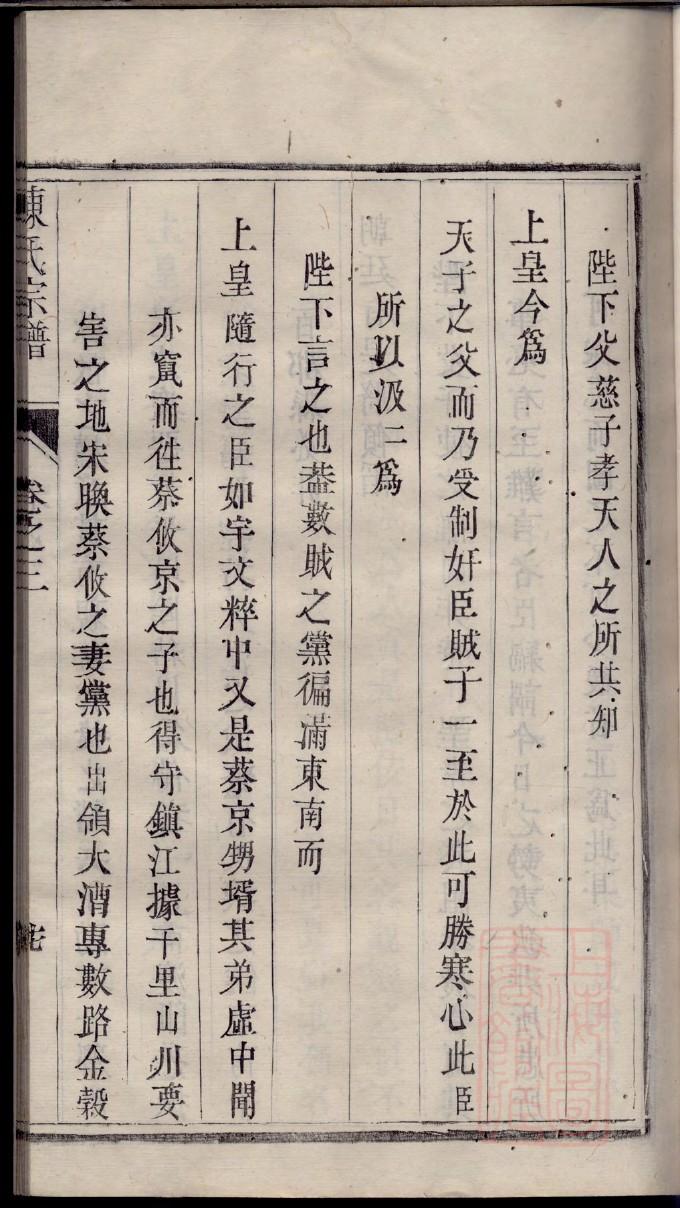 陛下父慈子孝天人之所共知
上皇今爲
天子之父而乃受制奸臣賊子一至於此可勝寒心此臣
所以汲二爲
陛下言之也葢數賊之黨徧滿東南而
上皇隨行之臣如宇文粹中又是蔡京甥壻其弟虛中聞
亦竄而徃蔡攸京之子也得守鎮江據千里山川要
害之地宋㬇蔡攸之妻黨也出領大漕專數路金穀
陳氏宗譜
卷之三